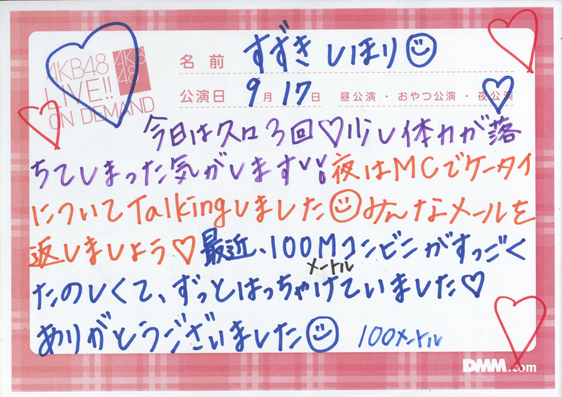 AKB48
LIVE!!
ON DEMAND
AKB
48
名前 すずきしほり
公演日 9月17日 昼公演・おやつ公演・夜公演
今日はクロ3回♡少し体力が落
ちてしまった気がします!!夜はMCでケータイ
についてTalkingしましたみんなメールを
返しましょう♡最近、100Mコンビニがすっごく
メートル
たのしくて、ずっとはっちゃけていました♡
ありがとうございました 100メートル
DMM.com